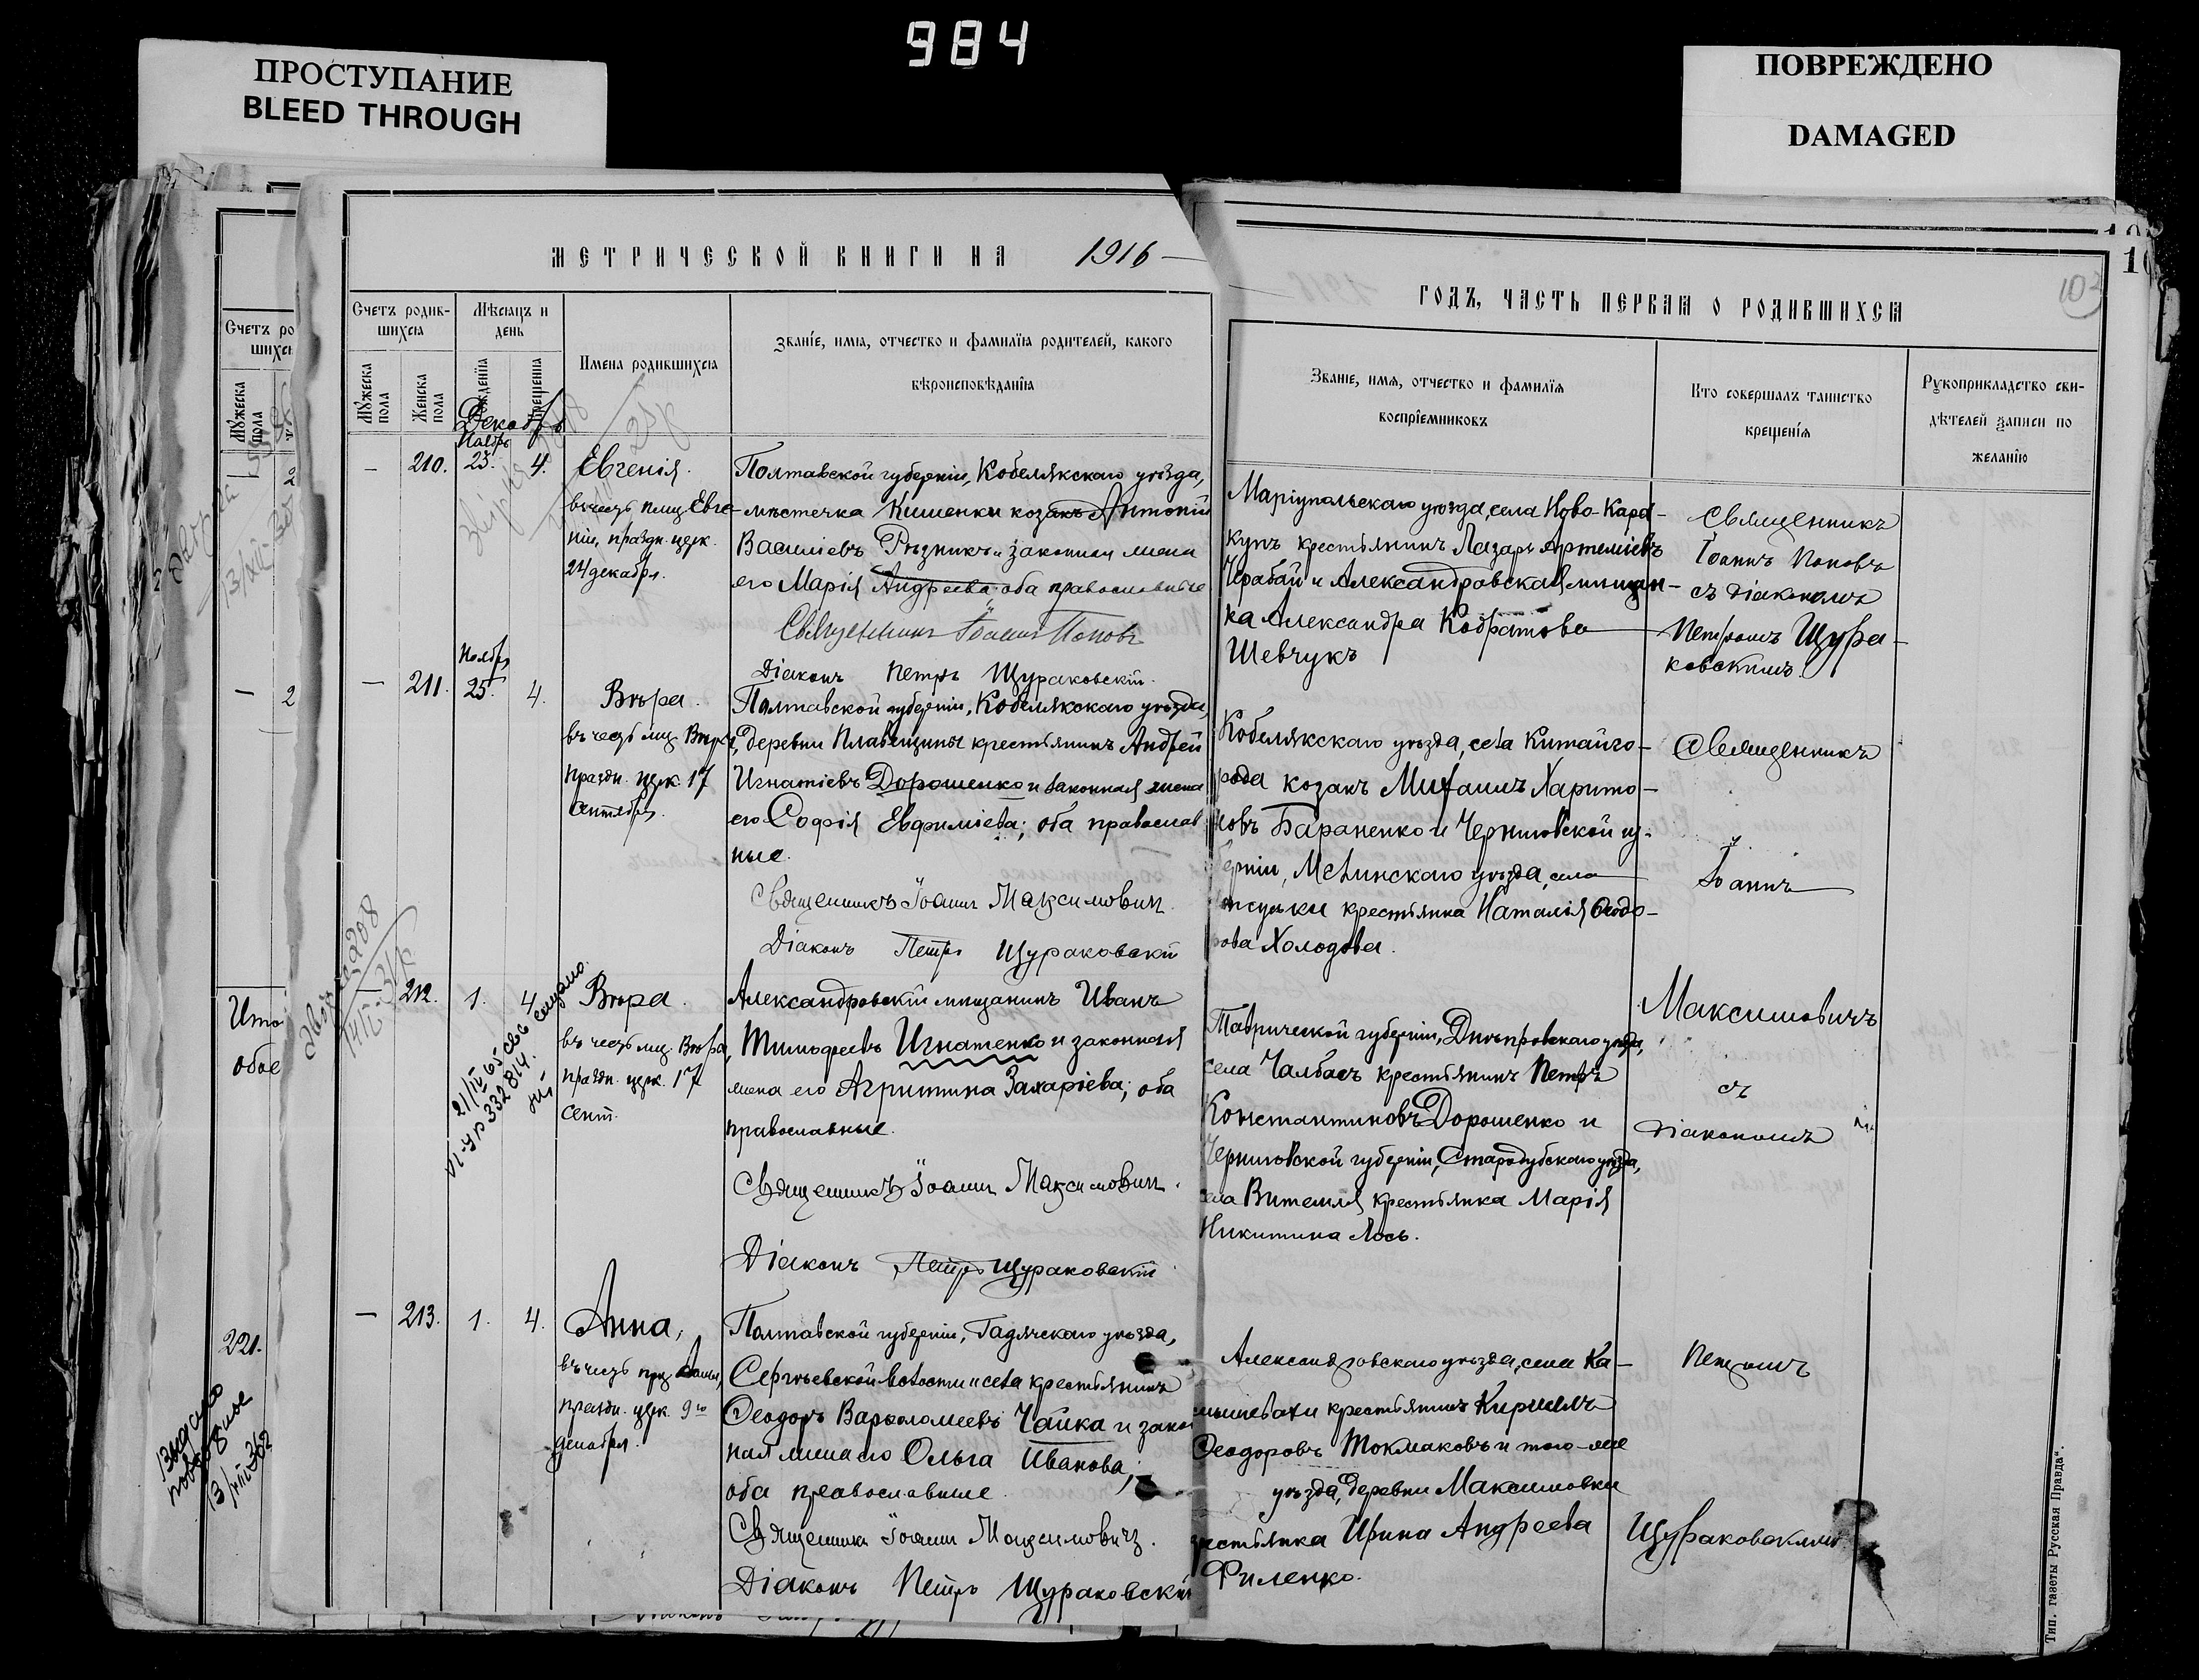 984
ПРОСТУПАНИЕ
BLEED THROUGH
ПОВРЕЖДЕНО
DAMAGED
МЕТРИЧЕСКОЙ КНИГИ НА 1916
Счетъ родив-
шихся
Мѣсяцъ и
день
Имена родившихся
Званіе, имя, отчество и фамилія родителей, какого
вѣроисповѣданія
Мужеска пола
Женска пола
Рожденія
Крещенія
Декабрь
Ноябрь
— 210. 23. 4. Евгенія.
въ честь прмц Евге-
ніи, праздн. церк.
24 декабря.
Полтавской губерніи, Кобелякскаго уѣзда,
мѣстечка Кишенки козакъ Антоній
Василіевъ Рѣзникъ и законная жена
его Марія Андреева; оба православные
Священникъ Іоаннъ Поповъ
Діаконъ Петръ Щураковскій.
Ноябрь
— 211. 25. 4. Вѣра.
въ честь мц. Вѣры,
праздн. церк. 17
сентября.
Полтавской губерніи, Кобелякскаго уѣзда,
деревни Плавещины крестьянинъ Андрей
Игнатіевъ Дорошенко и законная жена
его Софія Евфиміева; оба православ
ные.
Священникъ Іоаннъ Максимович
Діаконъ Петръ Щураковскій
— 212. 1. 4. Вѣра.
въ честь мц. Вѣры,
праздн. церк. 17
сент.
Александровскій мѣщанинъ Иванъ
Тимофеевъ Игнатенко и законная
жена его Агриппина Захаріева; оба
православные.
Священникъ Іоаннъ Максимович.
Діаконъ Петръ Щураковскій
— 213. 1. 4. Анна,
въ честь прав. Анны,
праздн. церк. 9го
декабря.
Полтавской губерніи, Гадячскаго уѣзда,
Сергѣевской волости и села крестьянинъ
Ѳеодоръ Варѳоломеевъ Чайка и закон
ная жена его Ольга Иванова;
оба православные.
Священникъ Іоаннъ Максимович.
Діаконъ Петръ Щураковскій
ГОДЪ, ЧАСТЬ ПЕРВАЯ О РОДИВШИХСЯ
103
Званіе, имя, отчество и фамилія
воспріемниковъ
Кто совершалъ таинство
крещенія
Рукоприкладство сви-
дѣтелей записи по
желанію
Маріупольскаго уѣзда, села Ново-Кара-
купъ крестьянинъ Лазарь Артеміевъ
Чарабай и Александровская мѣщан-
ка Александра Кодратова
Шевчукъ
Священникъ
Іоаннъ Поповъ
съ діакономъ
Петромъ Щура-
ковскимъ.
Кобелякскаго уѣзда, села Китайго-
рода козакъ Михаилъ Харито-
новъ Бараненко и Черниговской гу-
берніи, Мглинскаго уѣзда, села
крестьянка Наталія Ѳеодо-
рова Холодова.
Священникъ
Іоаннъ
Максимовичъ
съ
діакономъ
Таврической губерніи, Днѣпровскаго уѣзда,
села Чалбасъ крестьянинъ Петръ
Константиновъ Дорошенко и
Черниговской губерніи, Стародубскаго уѣзда,
села Витемля крестьянка Марія
Никитина Лось.
Александровскаго уѣзда, села Ка-
мышевахи крестьянинъ Кириллъ
Ѳеодоровъ Токмаковъ и того-же
уѣзда, деревни Максимовки
крестьянка Ирина Андреева
Филенко.
Петромъ
Щураковскимъ
Тип. газеты „Русская Правда“.
Счетъ ро
шихся
Мужеска пола
— 2
Ито
обое
221.